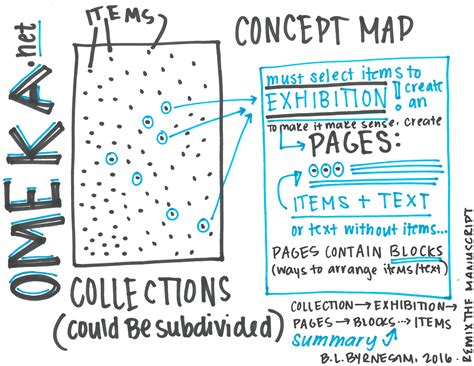 OMEKA.net
ITEMS
COLLECTIONS
(could Be subdivided)
CONCEPT MAP
must select items to
create
EXHIBITION! an
to make it make sense, create
PAGES:
ITEMS + TEXT
or text without items...
PAGES CONTAIN BLOCKS
(ways to arrange items/text)
COLLECTION → EXHIBITION →
PAGES → BLOCKS ... ITEMS
Summary
B.L.BYRNESIM, 2016.
REMIX THE MANUSCRIPT